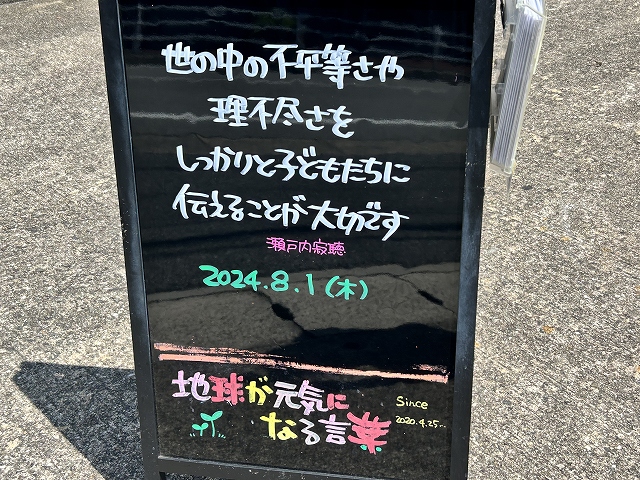 世の中の不平等さや
理不尽さを
しっかりと子どもたちに
伝えることが大切です
瀬戸内寂聴
2024.8.1(木)
地球が元気に
なる言葉
Since
2020.4.25...